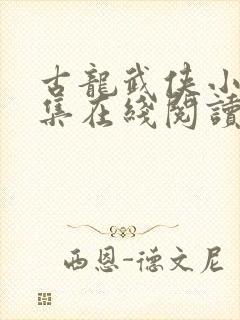 古龍武俠小
集在綫閱讀
西恩-德文尼